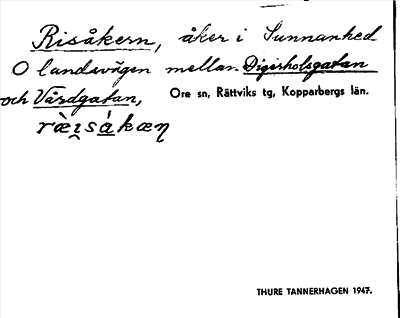 Risåkern, åker i Sunnanhed
O landsvägen mellan Digerholsgatan
och Vårdgatan,
Ore sn, Rättviks tg, Kopparbergs län.
ræ̀i̯sákæn̥
THURE TANNERHAGEN 1947.